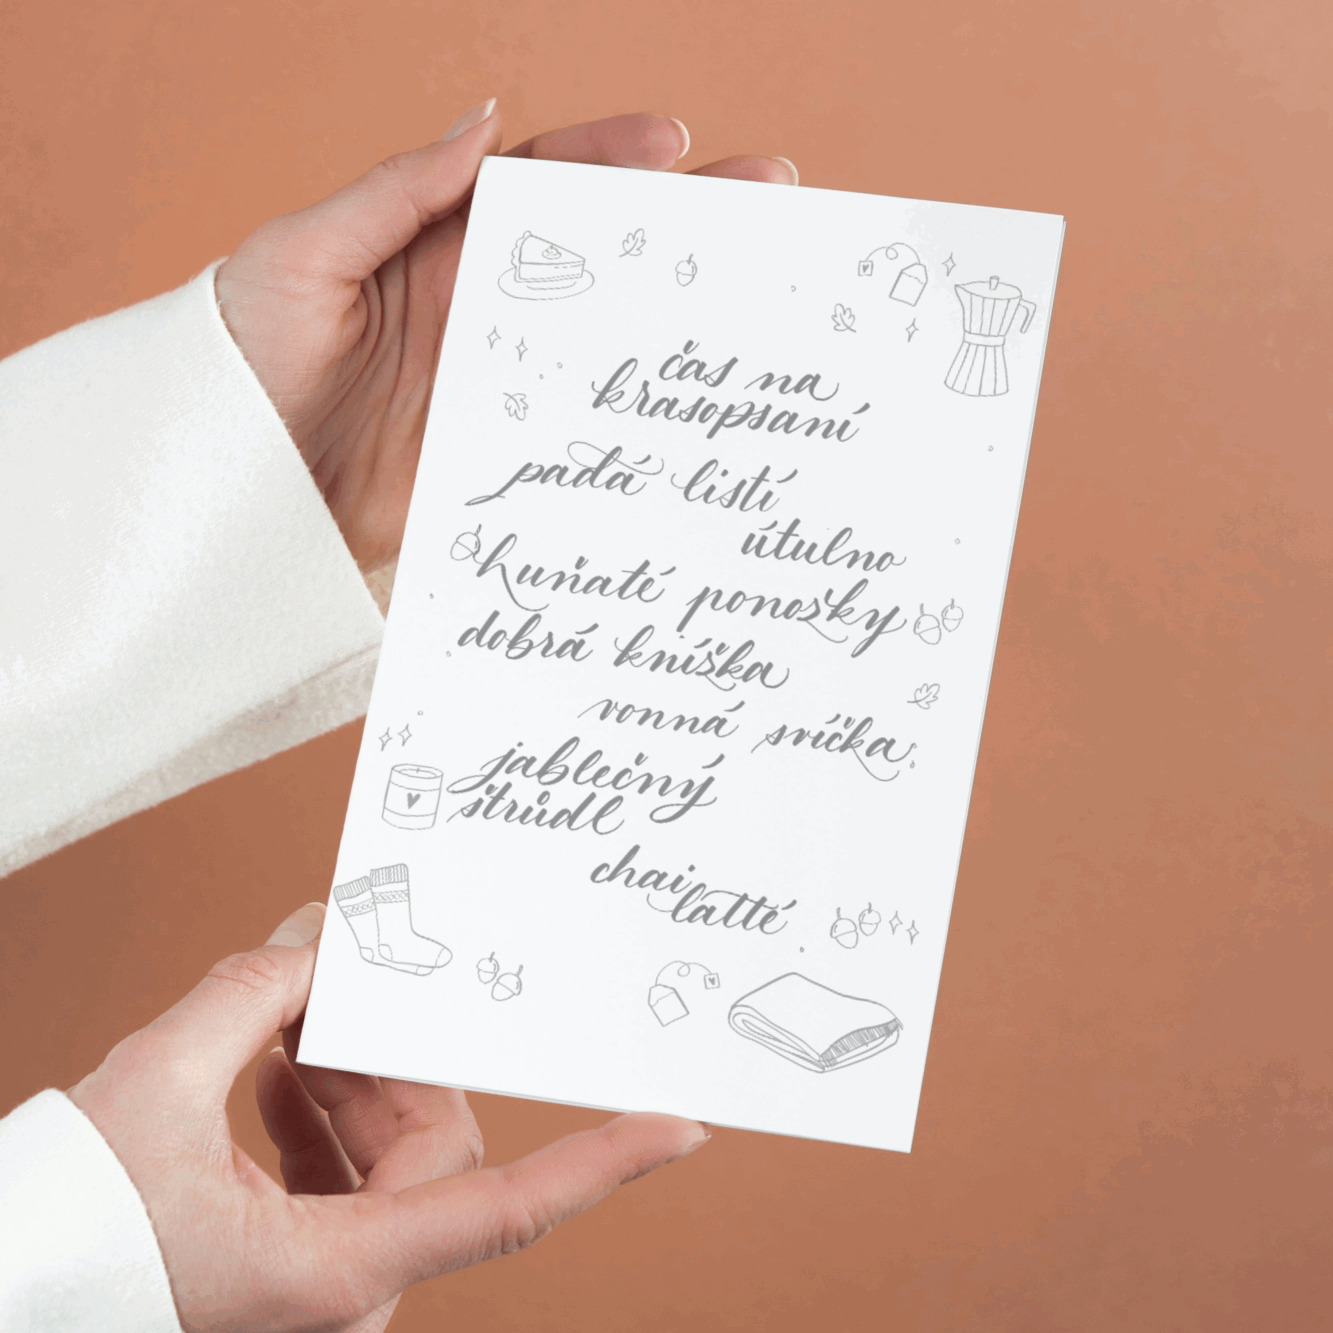 čas na
krasopsaní
padá listí
útulno
huňaté ponožky
dobrá knížka
vonná svíčka
jablečný
štrůdl
chai
latté